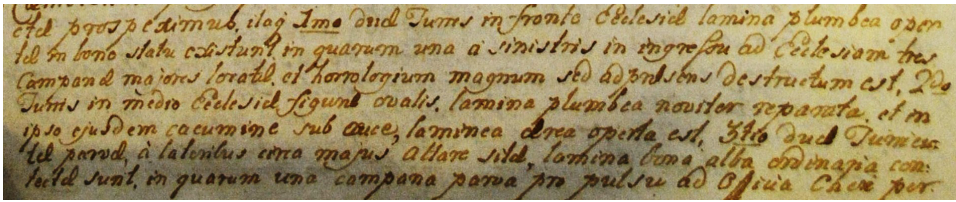 etæ prospeximus, itaq 1mo duæ Turres in fronte Ecclesiæ lamina plumbea oper
tæ in bono statu existunt, in quarum una a sinistris in ingressu ad Ecclesiam tres
Campanæ majores locatæ, et horrologium magnum sed adpræsens destructum est, 2do
Turris in medio Ecclesiæ figuræ ovalis, lamina plumbea noviter reparata, et in
ipso ejusdem cacumine sub cruce, laminea ærea operta est, 3tio duæ Turricu-
læ parvæ, à lateribus circa majus Altare sitæ, lamina bona alba ordinaria con-
tectæ sunt, in quarum una campana parva pro pulsu ad Officia Chori per-